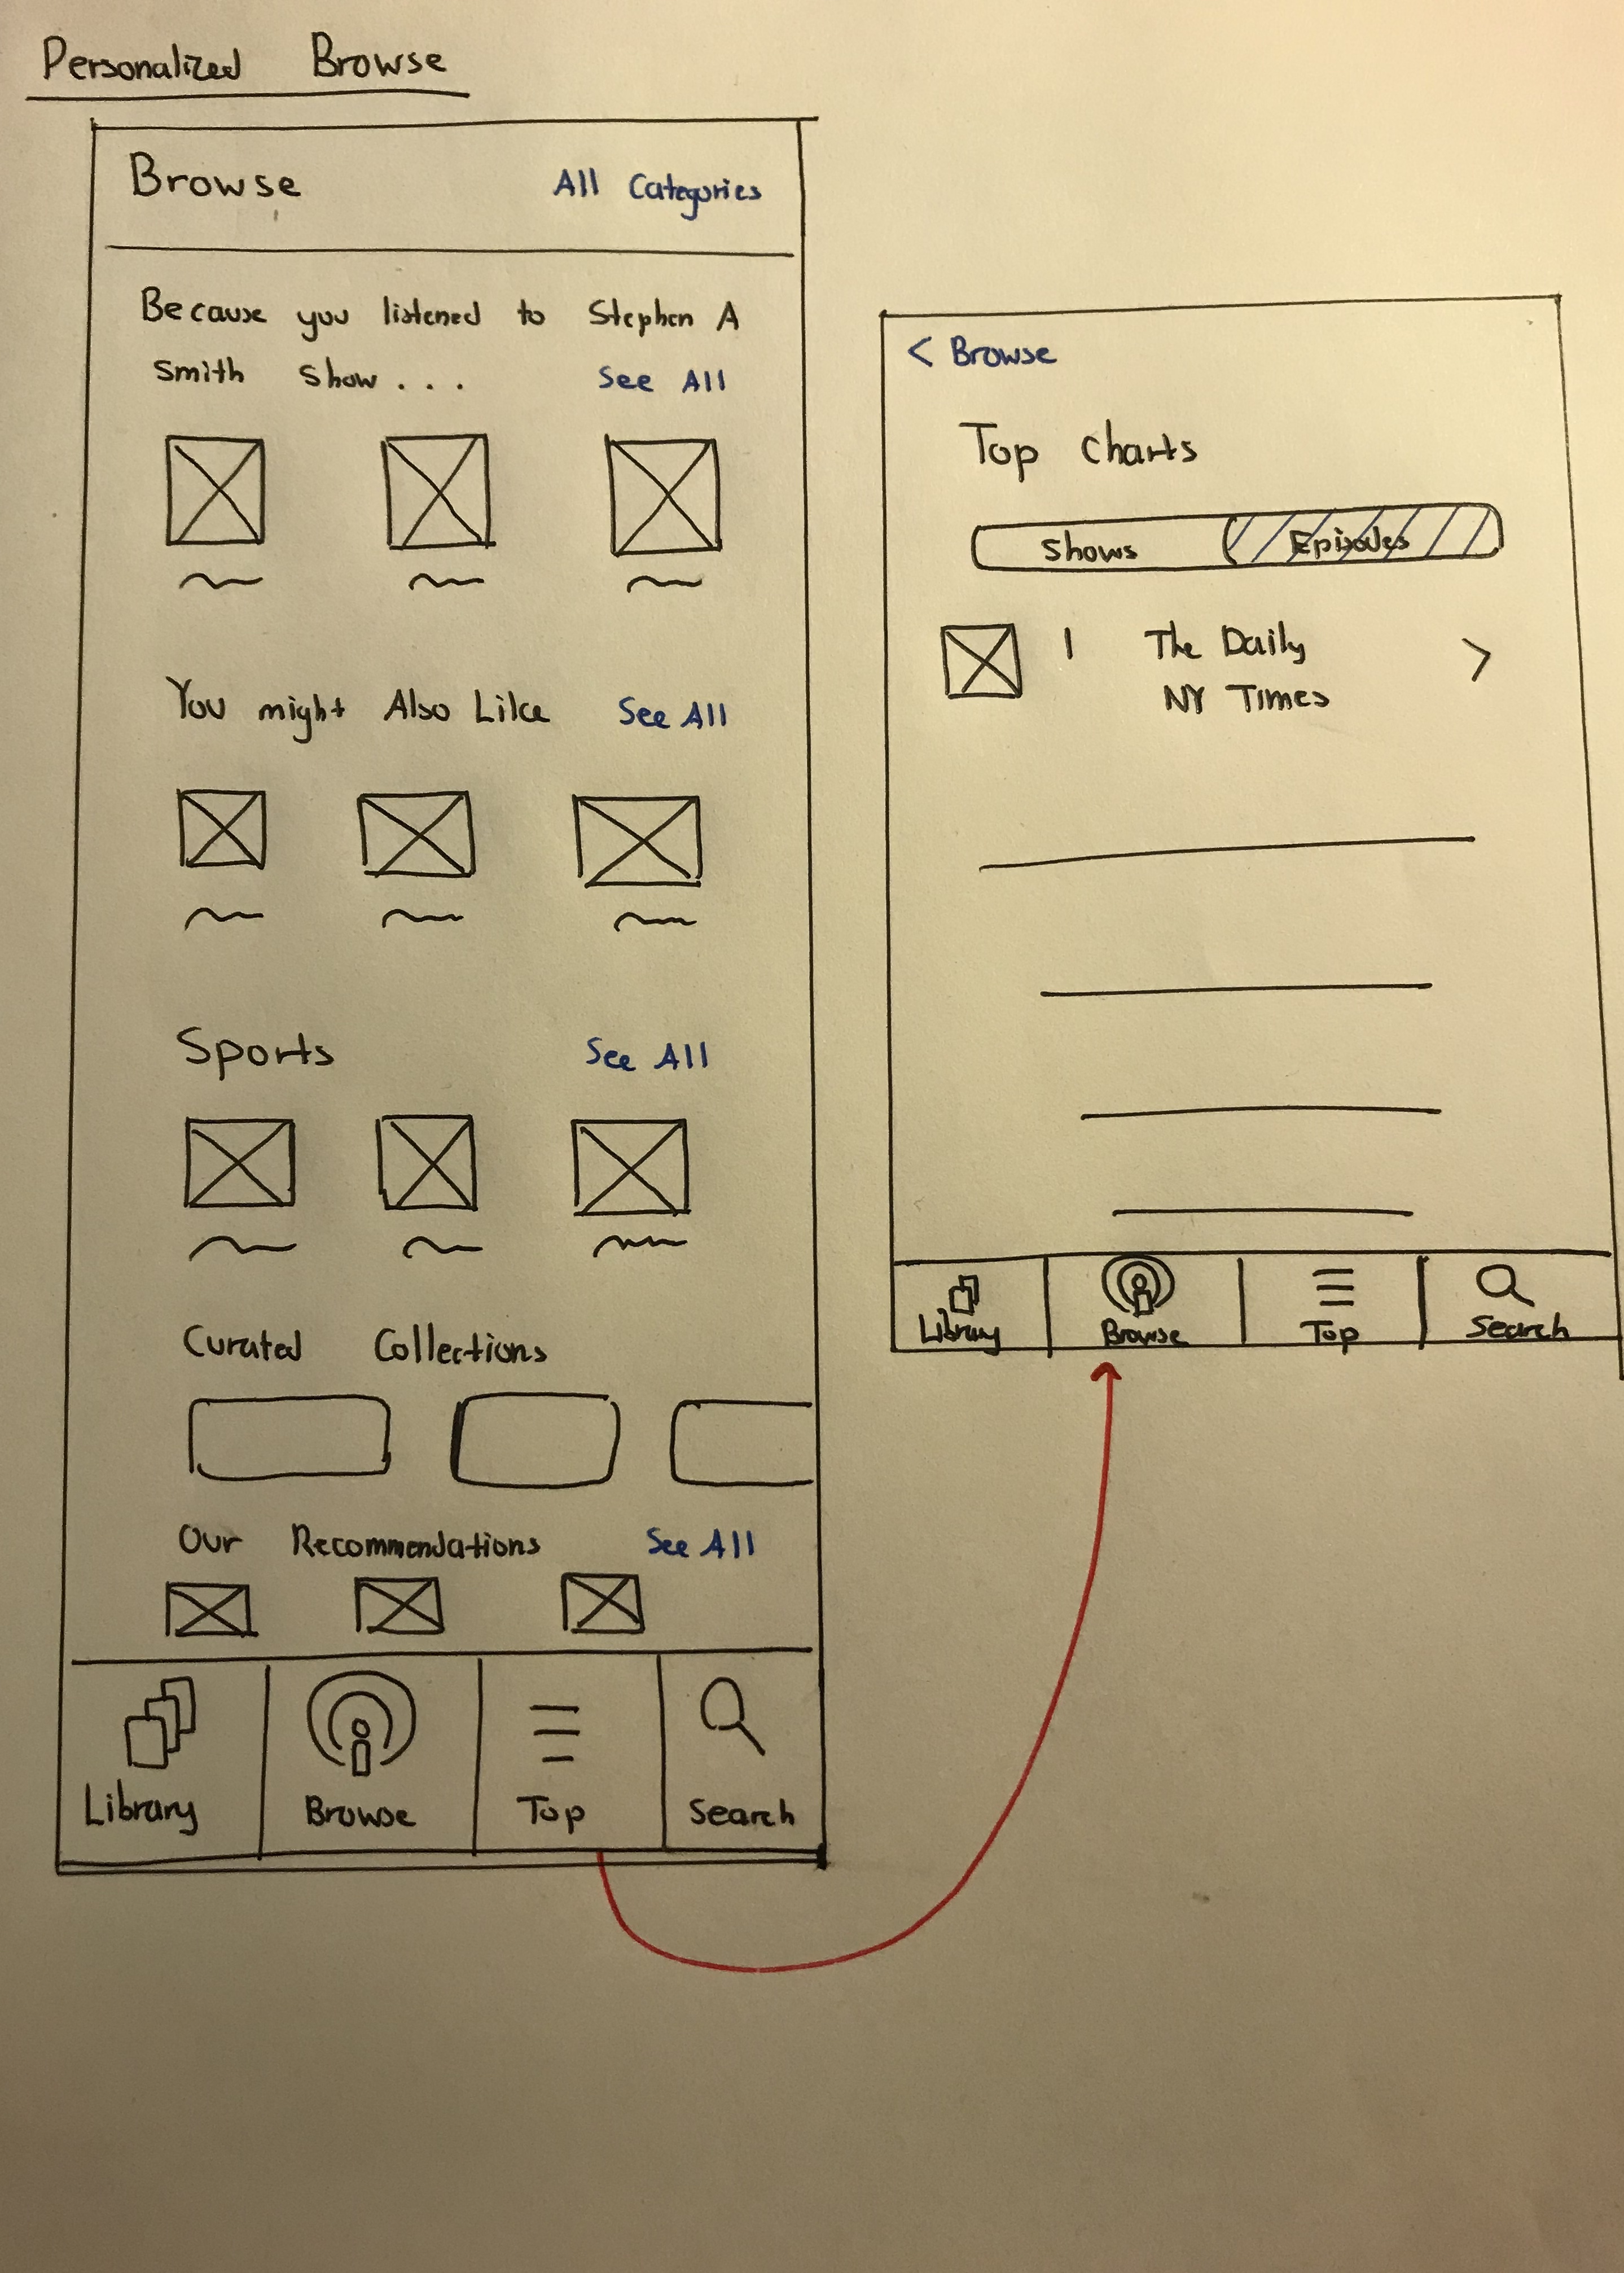 Personalized Browse
Browse All Categories
Because you listened to Stephen A
Smith Show... See All
You might Also Like See All
Sports See All
Curated Collections
Our Recommendations See All
Library Browse Top Search
< Browse
Top Charts
Shows Episodes
1 The Daily >
NY Times
Library Browse Top Search